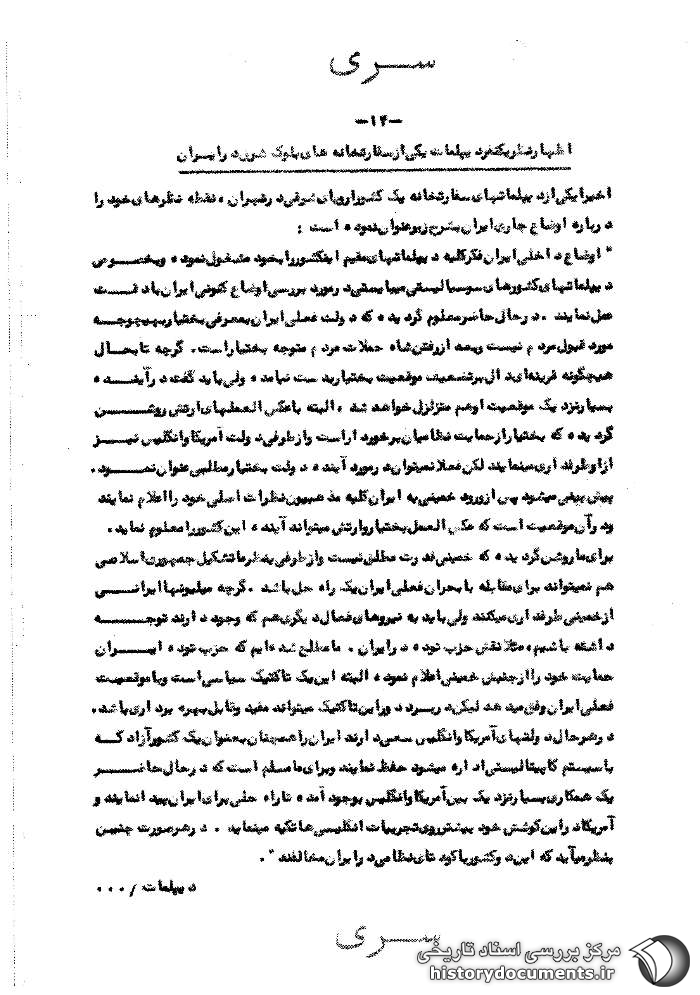 سری
-۱۴-
اظهارنظر یکنفر دیپلمات یکی از سفارتخانه های بلوک شرق در ایران
اخیرا یکی از دیپلماتهای سفارتخانه یک کشور اروپای شرقی در تهران ، نقطه نظرهای خود را
درباره اوضاع جاری ایران بشرح زیر عنوان نموده است :
" اوضاع داخلی ایران فکر کلیه دیپلماتهای مقیم اینکشور را بخود مشغول نموده و بخصوص
دیپلماتهای کشورهای سوسیالیستی میبایستی در مورد بررسی اوضاع کنونی ایران با دقت
عمل نمایند . در حال حاضر معلوم گردیده که دولت فعلی ایران بمعرفی بختیار بهیچوجه
مورد قبول مردم نیست و بعد از رفتن شاه حملات مردم متوجه بختیار است . گرچه تا بحال
هیچگونه قرینه‌ای دال بر تضعیف موقعیت بختیار بدست نیامده ولی باید گفت در آینده
بسیار نزدیک موقعیت او هم متزلزل خواهد شد ، البته با عکس العملهای ارتش روشن
گردیده که بختیار از حمایت نظامیان برخوردار است و از طرفی دولت آمریکا و انگلیس نیز
از او طرفداری مینمایند لکن فعلا نمیتوان در مورد آینده دولت بختیار مطلبی عنوان نمود .
پیش بینی میشود پس از ورود خمینی به ایران کلیه مذهبیون نظرات اصلی خود را اعلام نمایند
و در آن موقعیت است که عکس العمل بختیار و ارتش میتواند آینده این کشور را معلوم نماید .
برای ما روشن گردیده که خمینی قدرت مطلق نیست و از طرفی بنظر ما تشکیل جمهوری اسلامی
هم نمیتواند برای مقابله با بحران فعلی ایران یک راه حل باشد . گرچه میلیونها ایرانی
از خمینی طرفداری میکنند ولی باید به نیروهای فعال دیگری هم که وجود دارند توجه
داشته باشیم ، مثلا نقش حزب توده در ایران . ما مطلع شده‌ایم که حزب توده ایران
حمایت خود را از جنبش خمینی اعلام نموده البته این یک تاکتیک سیاسی است و با موقعیت
فعلی ایران وفق میدهد لیکن دیر یا زود این تاکتیک میتواند مفید و قابل بهره برداری باشد .
در هر حال دولتهای آمریکا و انگلیس سعی دارند ایران را همچنان بعنوان یک کشور آزاد که
با سیستم کاپیتالیستی اداره میشود حفظ نمایند و برای ما مسلم است که در حال حاضر
یک همکاری بسیار نزدیک بین آمریکا و انگلیس بوجود آمده تا راه حلی برای ایران پیدا نمایند و
آمریکا در این کوشش خود بیشتر روی تجربیات انگلیسی ها تکیه مینماید . در هر صورت چنین
بنظر میآید که این دو کشور با کودتای نظامی در ایران مخالفند " .
دیپلمات /...
سری
مرکز بررسی اسناد تاریخی
historydocuments.ir